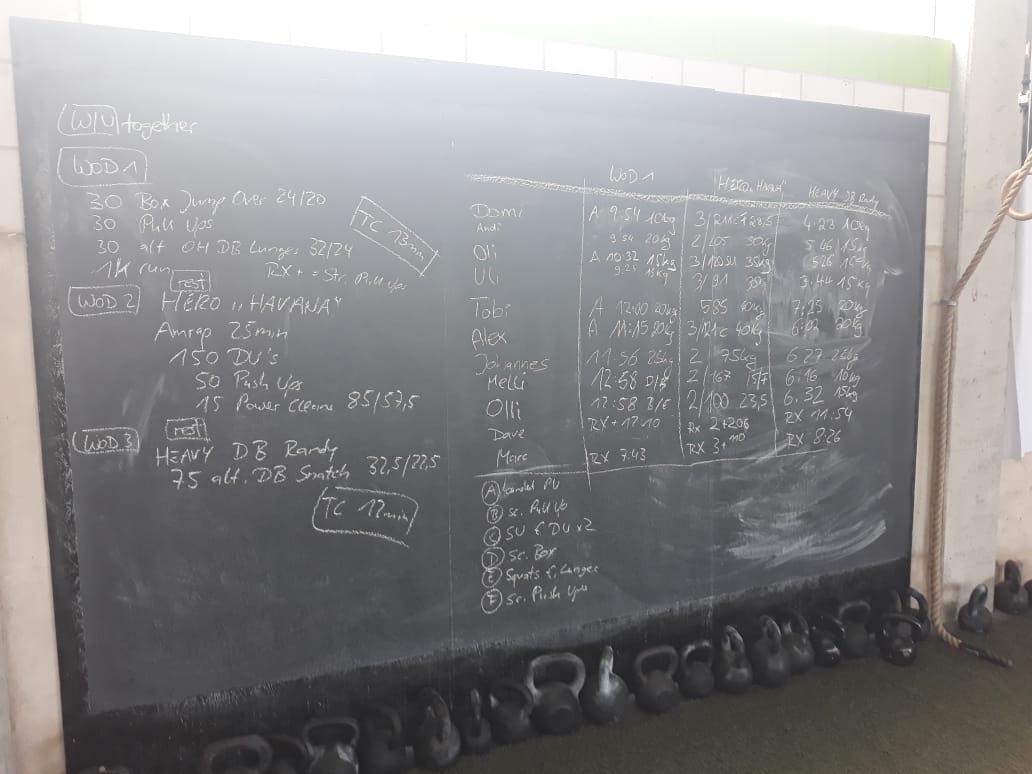 W/U together
WOD 1
30 Box Jump Over 24/20
30 Pull Ups
30 alt OH DB Lunges 32/24
1k run
RX+ = Str. Pull ups
TC 13min
rest
WOD 2
HERO „HAVANA"
Amrap 25min
150 DU's
50 Push Ups
15 Power Cleans 85/57,5
rest
WOD 3
HEAVY DB Randy
75 alt. DB Snatch 32,5/22,5
TC 12min
WOD 1 HERO „HAVANA" HEAVY DB Randy
Domi A 9:54 10kg 3/ 4:23 10kg
Andi 9:54 20kg 2/205 30kg 5:46 15kg
Oli A 10:32 15kg 3/ 35kg
Uli 9:25 15kg 3/91 3:44 15kg
Tobi A 12:00 20kg 585 40kg 7:25 20kg
Alex A 11:15 20kg 40kg 6:02 20kg
Johannes 11:56 25kg 2 75kg 6:27 25kg
Melli 12:58 2/167 6:16 10kg
Olli 12:58 B/E 2/100 23,5 6:32 15kg
Dave RX+ 12:10 RX 2+206 RX 11:54
Marc RX 7:43 RX 3+110 RX 8:26
A banded PU
B Sc. Pull Up
C SU f. DU x2
D Sc. Box
E Squats f. Lunges
F Sc. Push Ups